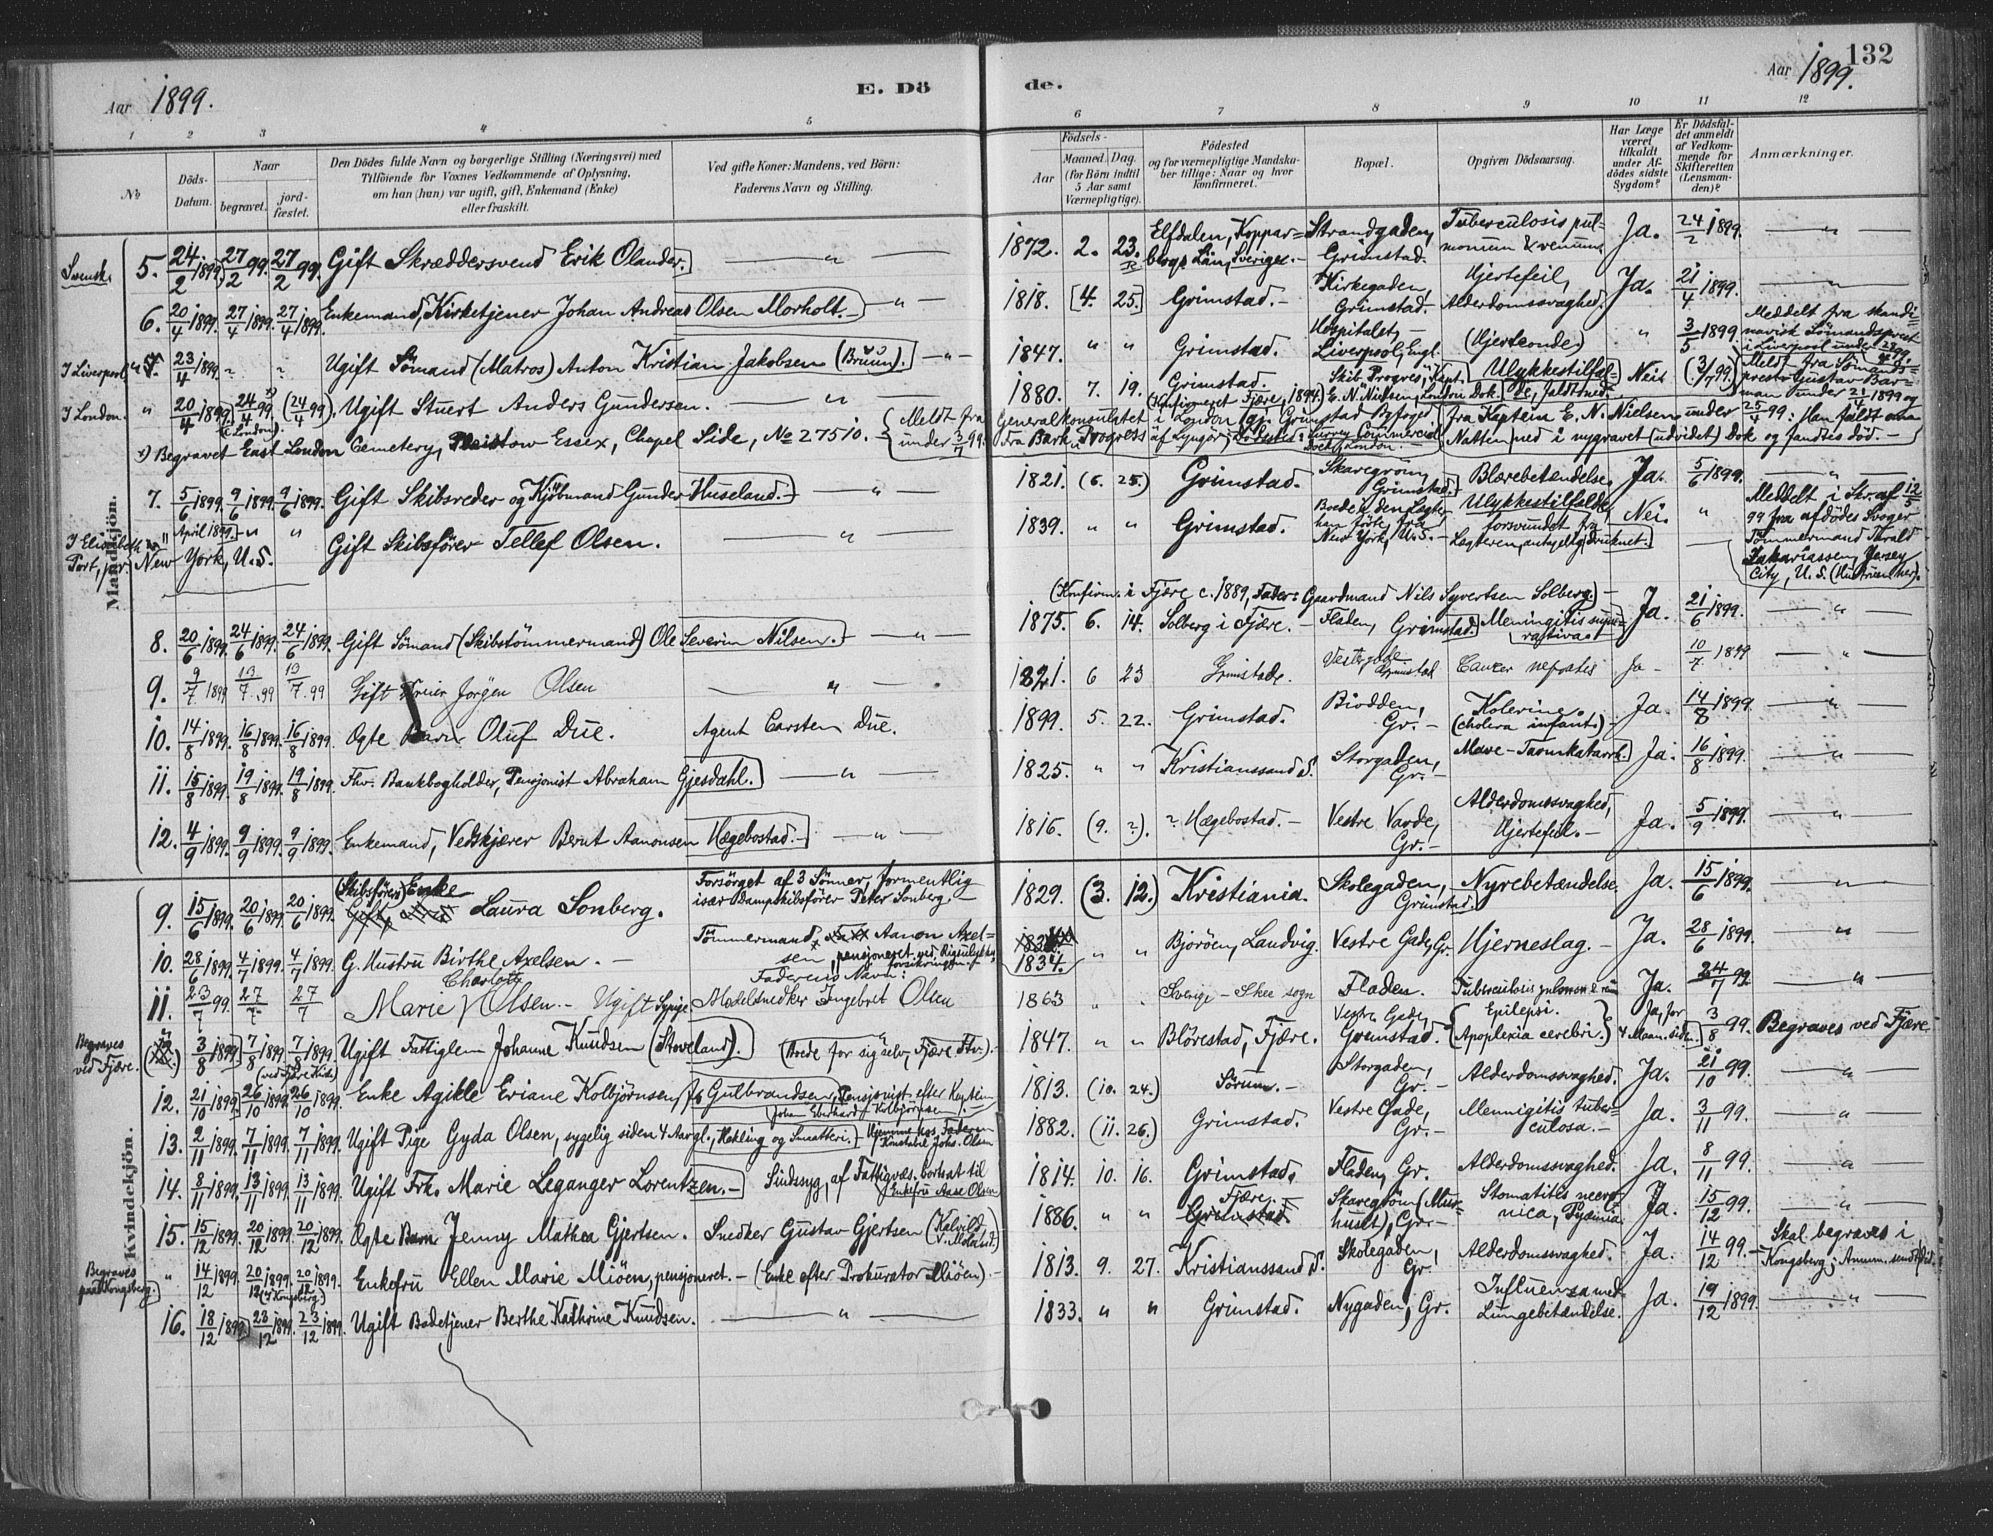 Aar 1899. E. Dö de. Aar 1899. 132
1 2 3 4 5 6 7 8 9 10 11 12
No Döds-Datum. Naar begravet. jord-fæstet.
Den Dödes fulde Navn og borgerlige Stilling (Næringsvei) med
Tilföiende for Voxnes Vedkommende af Oplysning,
om han (hun) var ugift, gift, Enkemand (Enke)
eller fraskilt.
Ved gifte Koner: Mandens, ved Börn:
Faderens Navn og Stilling.
Födsels-
Aar Maaned. Dag.
(for Börn indtil
5 Aar samt
Værnepligtige).
Födested
og for værnepligtige Mandska-
ber tillige: Naar og hvor
konfirmeret.
Bopæl.
Opgiven Dödsaarsag.
Har Læge
været
tilkaldt
under Af-
dödes sidste
Sygdom?
Er Dödsfal-
det anmeldt
af Vedkom-
mende for
Skifteretten
(Lensman-
den)?
Anmærkninger.
Mandkjön.
Svensk. 5. 24/2 1899. 27/2 99. 27/2 99. Gift Skræddersvend Erik Olander. — " — 1872. 2. 23. Elfdalen, Koppar-
bergs Län, Sverige. — Strandgaden, Grimstad. Tuberculosis pul-
monum & renum. Ja. 24/2 1899. — " —
6. 20/4 1899. 27/4 1899. 27/4 1899. Enkemand, Kirketjener Johan Andreas Olsen Morholt. — " — 1818. [4. 25.] Grimstad. — Kirkegaden, Grimstad. Hjertefeil, Alderdomssvaghed. Ja. 21/4 1899. — " —
I Liverpool " 23/4 1899. ? ? Ugift Sömand (Matros) Anton Kristian Jakobsen (Bruun). — " — 1847. " " Grimstad. Hospitalet, Liverpool, Engl. (Hjerteonde.) " 3/5 1899. Meddelt fra skandi-
navisk Sömandsprest
i Liverpool under
I London. " 20/4 1899. 24/4 99. (i London). (24/4 99). Ugift Stuert Anders Gundersen. — " — 1880. 7. 19. Grimstad. (Konfirmeret Fjære, 1894.) Skib "Progres", Kapt. E. N. Nielsen, London Dok. Ulykkestilfæl-
de, faldt ned. Nei (3/7 99.) Meldt fra Sömands-
prest Gustav Bar-
man under 21/4 1899 og
x) Begravet East London Cemetery, Plaistow Essex, Chapel Side, No 27510. — Meldt fra
under 3/7 99.
Generalkonsulatet i London gj. Grimstad Byfoged
fra Bark Progress af Lyngör, Dödssted: Surrey Commercial
Dock, London.
fra Kaptein E. N. Nielsen under 25/4 99: Han faldt om
Natten ned i nygravet (udvidet) Dok og fandtes död. —
7. 5/6 1899. 9/6 1899. 9/6 1899. Gift Skibsreder og Kjöbmand Gunder Huseland. — " — 1821. (6. 25.) Grimstad. Grimstad. Blærebetændelse. Ja. 5/6 1899. "
I Elisabeth
Port, pr. New York, U. S. " April 1899. " " Gift Skibsförer Tellef Olsen. — " — 1839. " " Grimstad. New York, U. S. — Ulykkestilfælde
forsvundet fra
Lægteren, antagelig druknet. Nei. " Meddelt i Skr. af 12/5
99 fra afdödes Svoger
Tömmermand Thrald
Zakariassen, Jersey
City, U. S. (Hustruen her).
(Konfirm. i Fjære c. 1889, Fader: Gaardmand Nils Syvertsen Solberg.) —
8. 20/6 1899. 24/6 1899. 24/6 1899. Gift Sömand (Skibstömmermand) Ole Severin Nilsen. — " — 1875. 6. 14. Solberg i Fjære. — Fladen, Grimstad. Meningitis suppu-
rativa. Ja. 21/6 1899. — " —
9. 9/7 1899 13/7 99 13/7 99 Gift Jörgen Olsen — " — 1821. 6 23 Grimstad. Vestregade Grimstad Cancer hepatis Ja — 10/7 1899 — " —
10. 14/8 1899. 16/8 1899. 16/8 1899. Ægte Barn Oluf Due. Agent Carsten Due. 1899. 5. 22. Grimstad. Biodden, Gr. — Kolerine.
(cholera infant.) — Ja. 14/8 1899. — " —
11. 15/8 1899. 19/8 1899. 19/8 1899. Fhv. Bankbogholder, Pensjonist Abraham Gjesdahl. — " — 1825. " " Kristianssand S. Storgaden, Gr. — Mave-Tarmkatarrh. Ja. 16/8 1899. — " —
12. 4/9 1899. 9/9 1899. 9/9 1899. Enkemand, Vedskjærer Bernt Aanonsen Hægebostad. — — " — 1816. (9. ?). ? Hægebostad. — Vestre Varde, Gr. — Alderdomssvaghed, Hjertefeil. — Ja. 5/9 1899. — " —
Kvindekjön.
9. 15/6 1899. 20/6 1899. 20/6 1899. (Skibsförer) Enke Laura Sonberg. Forsörget af 3 Sönner, formentlig
især Dampskibsförer Peter Sonberg. — 1829. (3. 12.) Kristiania. Skolegaden, Grimstad. Nyrebetændelse. Ja. 15/6 1899. — " —
10. 28/6 1899. 4/7 1899. 4/7 1899. G. Hustru Birthe Axelsen. — Tömmermand Aanon Axel-
sen, pensjoneret ved Rigsulykkes-
forsikringen. 1834. " " Bjoröen, Landvig. Vestre Gade, Gr. Hjerneslag. — Ja. 28/6 1899. "
11. 23/7 99. 27/7 27/7 Marie Charlotte Olsen. — Ugift Sypige Faderens Navn:
Modelsnedker Ingebret Olsen 1863 " " Sverige — Skee sogn Fladen. Tuberculosis pulmon. & ren Ja. 24/7 99. — " —
Begraves
ved Fjære. 3/8 1899. 7/8 1899. 7/8 1899. (ved Fjære Kirke) Ugift Fattiglem Johanne Knudsen (Stoveland). (Boede for sig selv, Fjære Ftv.). — 1847. " " Blörestad, Fjære. Vestre Gade, Grimstad. Epilepsi.
(Apoplexia cerebri.) Ja, for
4 Maan. siden. 3/8 99. Begraves ved Fjære.
12. 21/10 1899. 26/10 1899. 26/10 1899. Enke Agikle Eriane Kolbjörnsen f. Gulbrandsen, Pensjonist efter Kaptein
Johan Eberhard Kolbjörnsen. — 1813. (10. 24.) Sörum. — Storgaden, Gr. — Alderdomssvaghed. Ja. 21/10 99. — " —
13. 2/11 1899. 7/11 1899. 7/11 1899. Ugift Pige Gyda Olsen, sygelig siden 4 Aar gl., Hekling og Smaatteri. — Hjemme hos Faderen
Konstabel Johs. Olsen 1882. (11. 26.) Grimstad. Vestre Gade, Gr. — Mennigitis tuber-
culosa. — Ja. 3/11 99. — " —
14. 8/11 1899. 13/11 1899. 13/11 1899. Ugift Frk. Marie Leganger Lorentzen. — Sindssyg, af Fattigvæs. bortsat til
Enkefru Aase Olsen 1814. 10. 16. Grimstad. Fladen, Gr. Alderdomssvaghed. Ja. 8/11 99. — " —
15. 15/12 1899. 20/12 1899. 20/12 1899. Ægte Barn Jenny Mathea Gjertsen. Snedker Gustav Gjertsen (Kalvild,
v. Moland.) 1886. " " Fjære. Grimstad. Skaregröm (Mur-
huset), Gr. — Stomatitis necro-
nica, Pyæmia. Ja. 15/12 99. — " —
Begraves
paa Kongsberg. " 14/12 1899. 20/12 1899. (i Kongsberg) 20/12 1899. Enkefru Ellen Marie Miöen, pensjoneret. — (Enke efter Prokurator Miöen). — 1813. 9. 27. Kristianssand S. Skolegaden, Gr. Alderdomssvaghed. Ja. 14/12 99. — Skal begraves i
Kongsberg; Anm. sendt did.
16. 18/12 1899. 23/12 1899. 23/12 1899. Ugift Badetjener Berthe Kathrine Knudsen. — " — 1833. " " Grimstad. Nygaden, Gr. Influensa med
Lungebetændelse. Ja. 19/12 1899. — " —